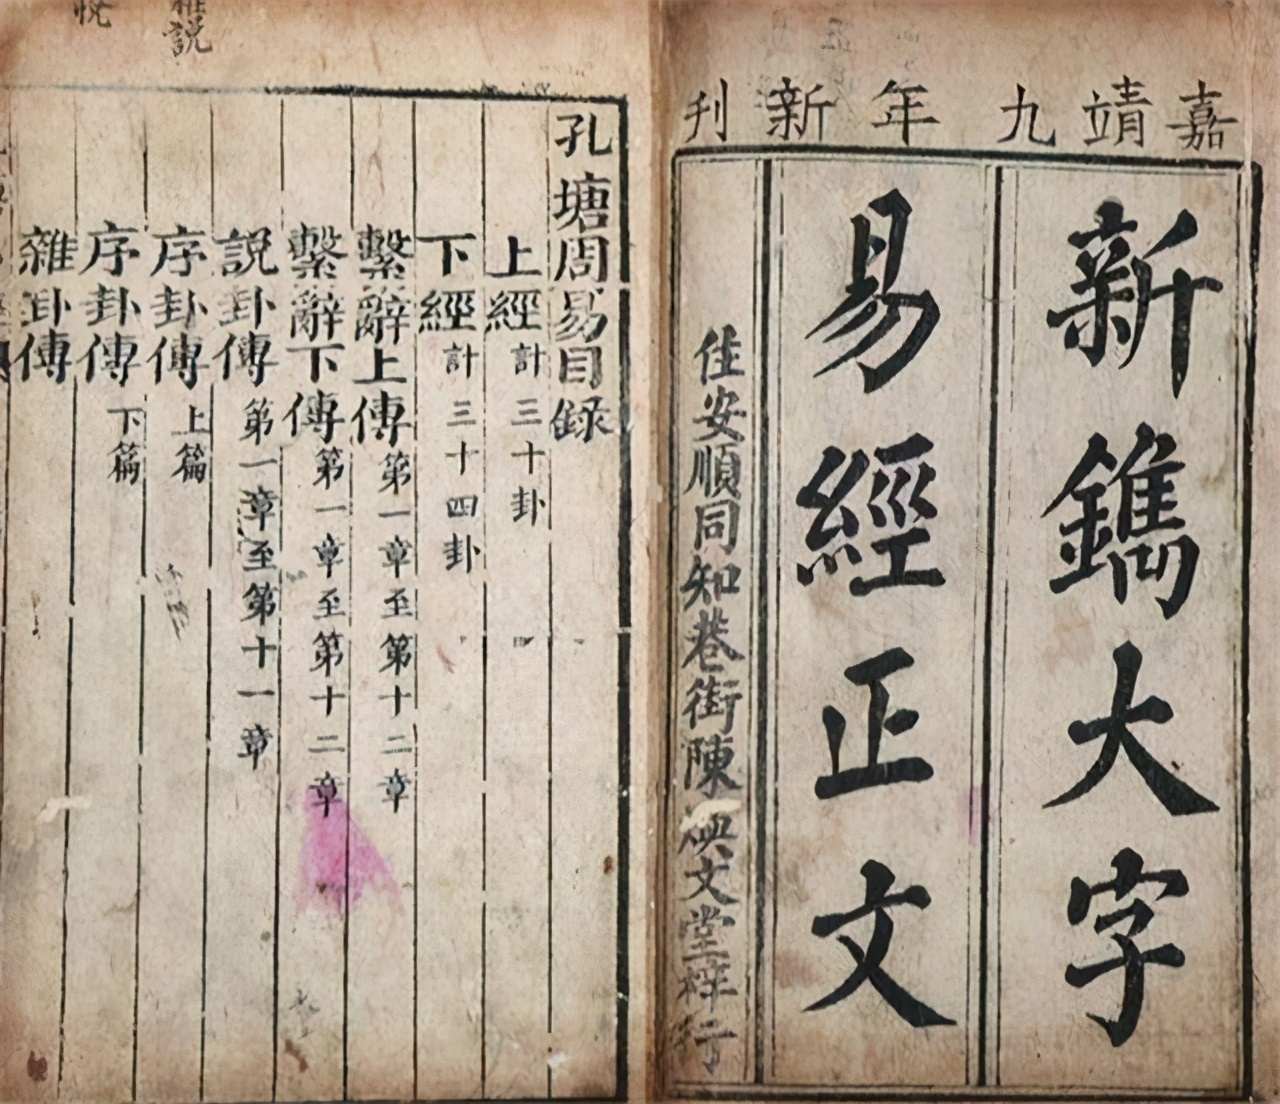 嘉靖九年新刊
新鐫大字
易經正文
住安順同知巷街陳 文堂梓行
孔塘周易目録
上經計三十卦
下經計三十四卦
繫辭上傳第一章至第十二章
繫辭下傳第一章至第十二章
説卦傳第一章至第十一章
序卦傳上篇
序卦傳下篇
雜卦傳
説
悅